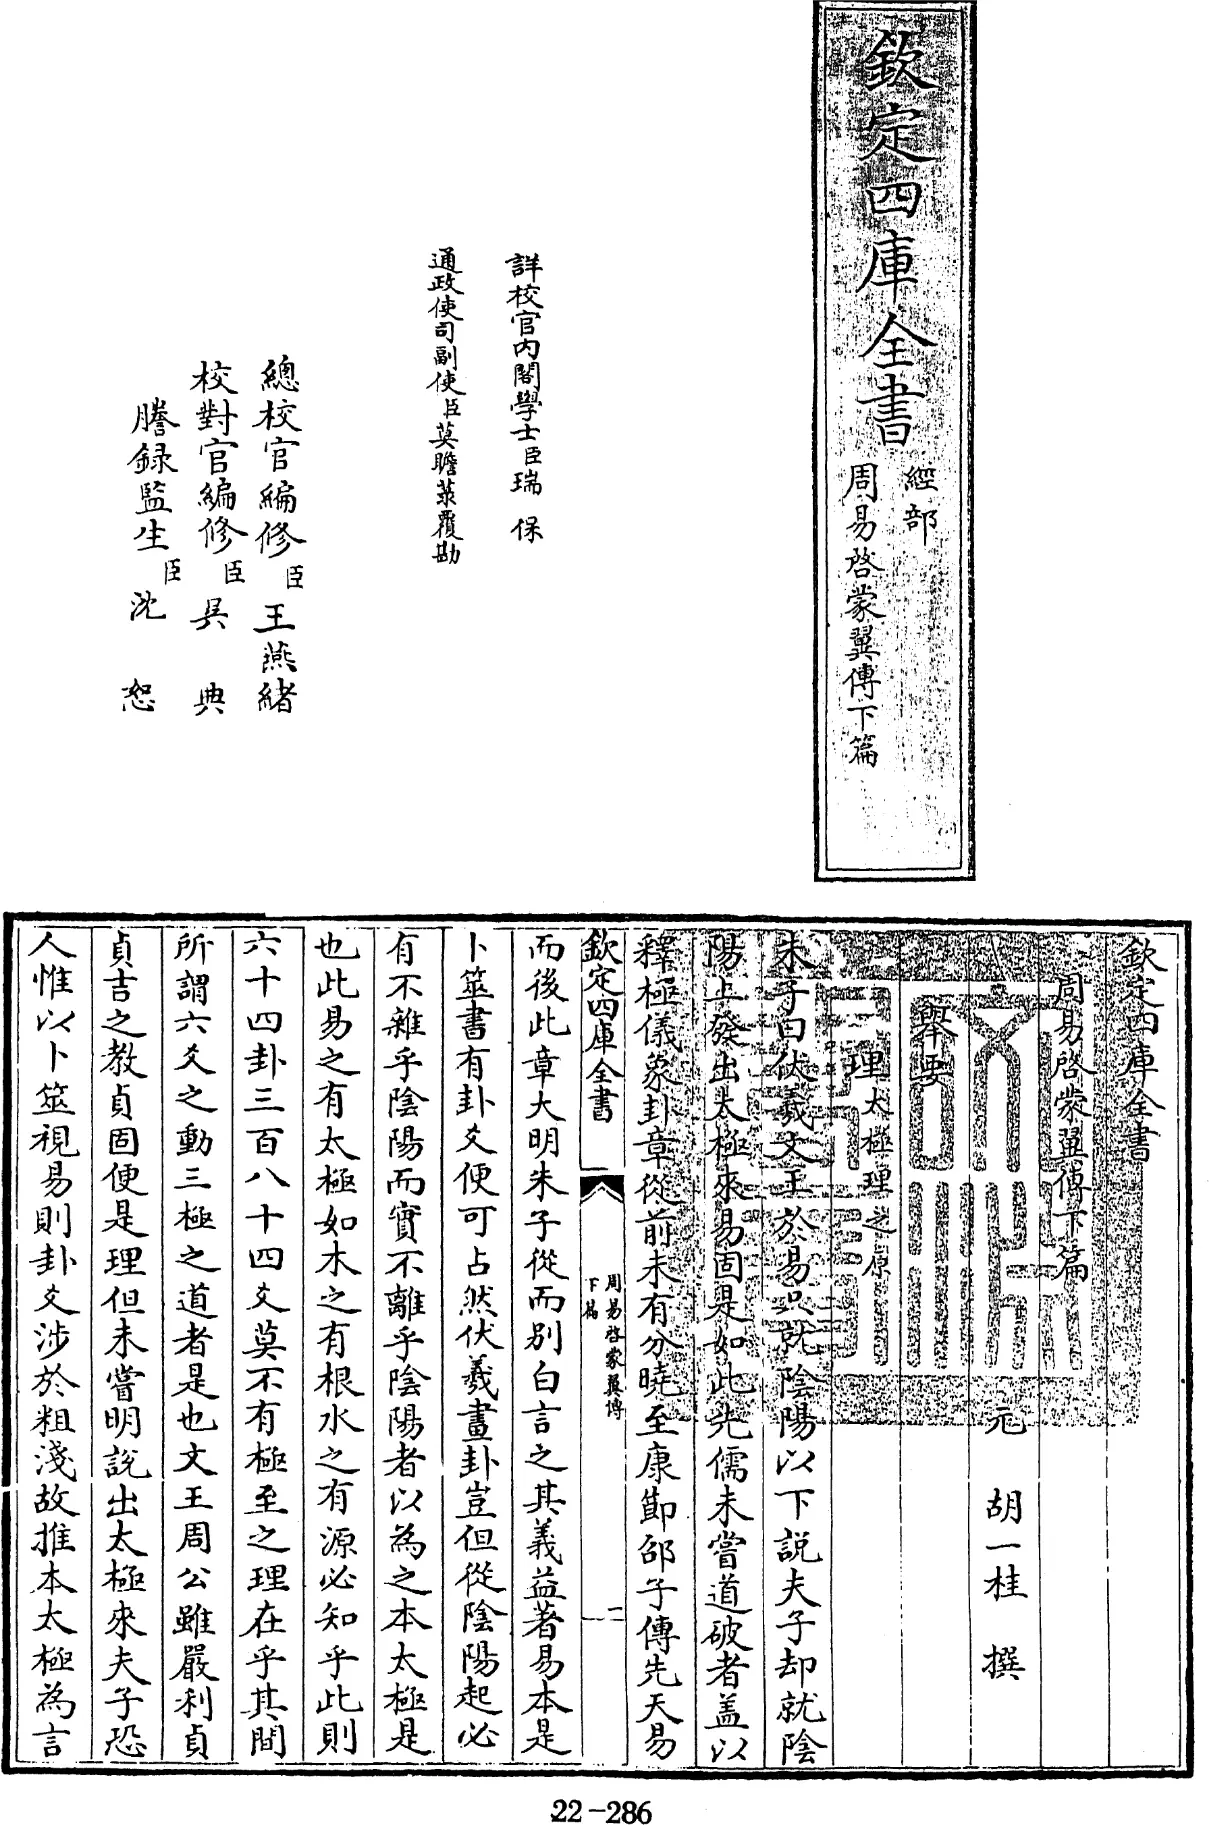 欽定四庫全書
經部
周易啓蒙翼傳下篇
詳校官内閣學士臣瑞保
通政使司副使臣莫瞻菉覆勘
總校官編修臣王燕緒
校對官編修臣吳典
謄錄監生臣沈恕
欽定四庫全書
周易啓蒙翼傳下篇
元 胡一桂 撰
舉要
理太極理之原
朱子曰伏羲文王於易只就陰陽以下說夫子却就陰
陽上發出太極來易固是如此先儒未嘗道破者盖以
釋極儀象卦章從前未有分曉至康節邵子傳先天易
欽定四庫全書
周易啓蒙翼傳
下篇
一
而後此章大明朱子從而别白言之其義益著易本是
卜筮書有卦爻便可占然伏羲畫卦豈但從陰陽起必
有不雜乎陰陽而實不離乎陰陽者以為之本太極是
也此易之有太極如木之有根水之有源必知乎此則
六十四卦三百八十四爻莫不有極至之理在乎其間
所謂六爻之動三極之道者是也文王周公雖嚴利貞
貞吉之教貞固便是理但未嘗明說出太極來夫子恐
人惟以卜筮視易則卦爻涉於粗淺故推本太極為言
22-286